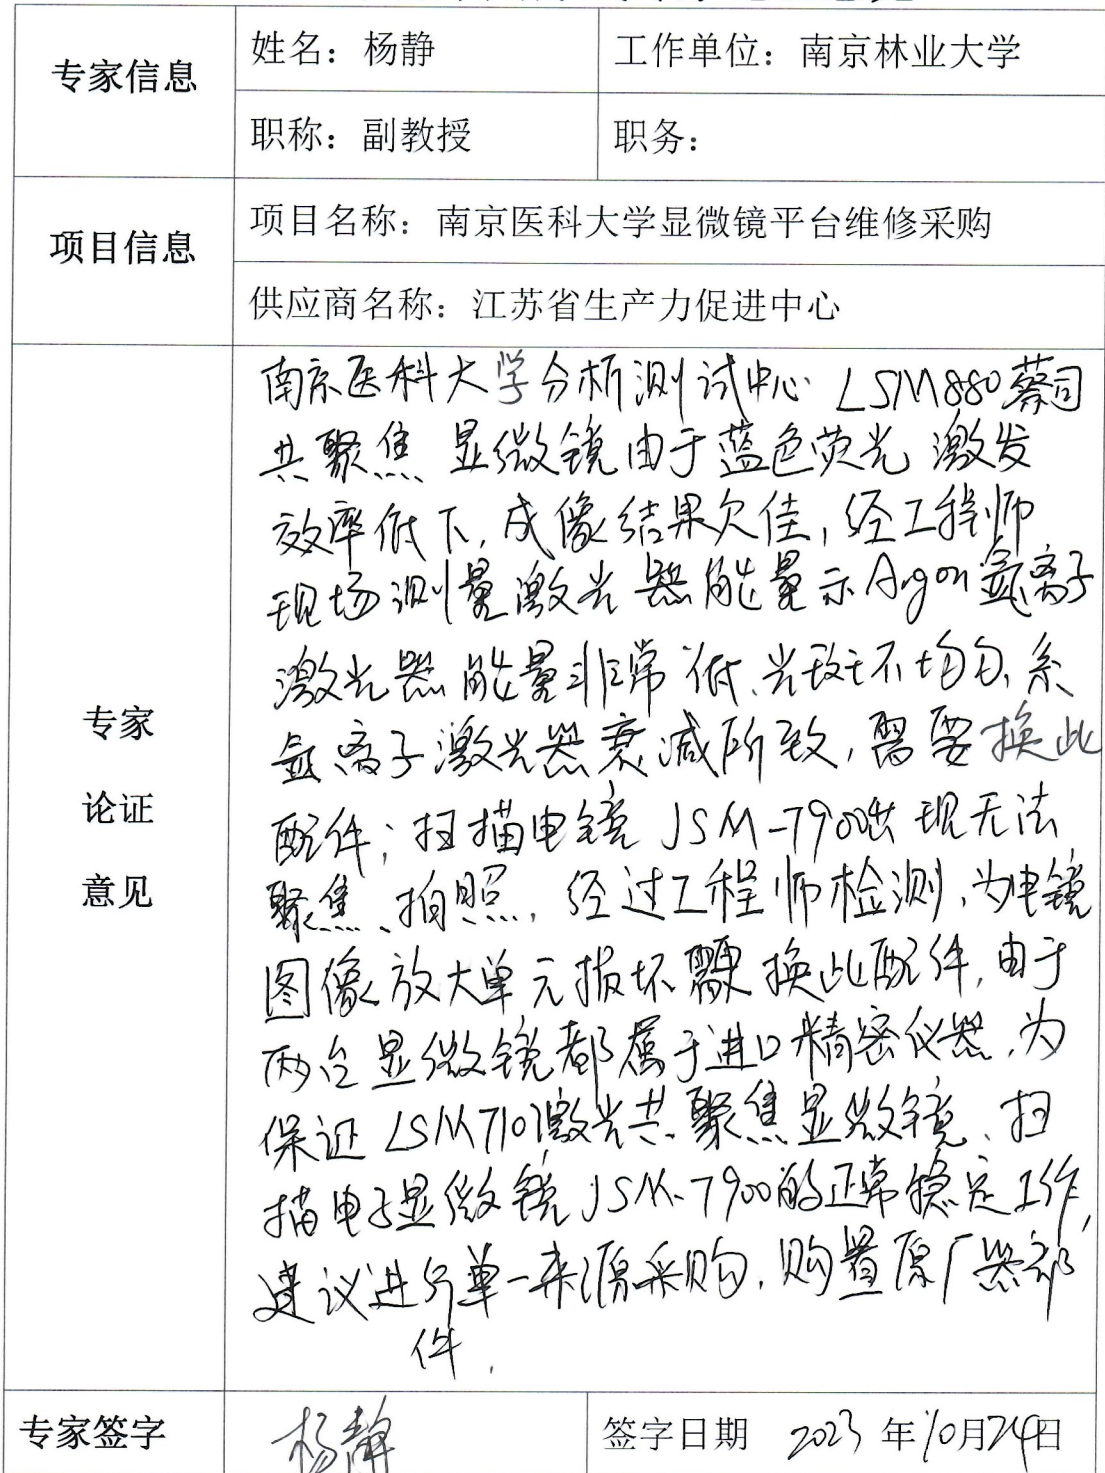 专家信息
姓名：杨静
工作单位：南京林业大学
职称：副教授
职务：
项目信息
项目名称：南京医科大学显微镜平台维修采购
供应商名称：江苏省生产力促进中心
专家
论证
意见
南京医科大学分析测试中心 LSM880蔡司
共聚焦显微镜由于蓝色荧光激发
效率低下，成像结果欠佳，经工程师
现场测量激光器能量示Argon氩离子
激光器能量非常低、光斑不均匀，系
氩离子激光器衰减所致，需要换此
配件；扫描电镜 JSM-7900出现无法
聚焦、拍照，经过工程师检测，为电镜
图像放大单元损坏需更换此配件，由于
两台显微镜都属于进口精密仪器，为
保证 LSM710激光共聚焦显微镜、扫
描电子显微镜 JSM-7900的正常稳定工作，
建议进行单一来源采购，购置原厂器部
件.
专家签字
杨静
签字日期 2023 年10月24日